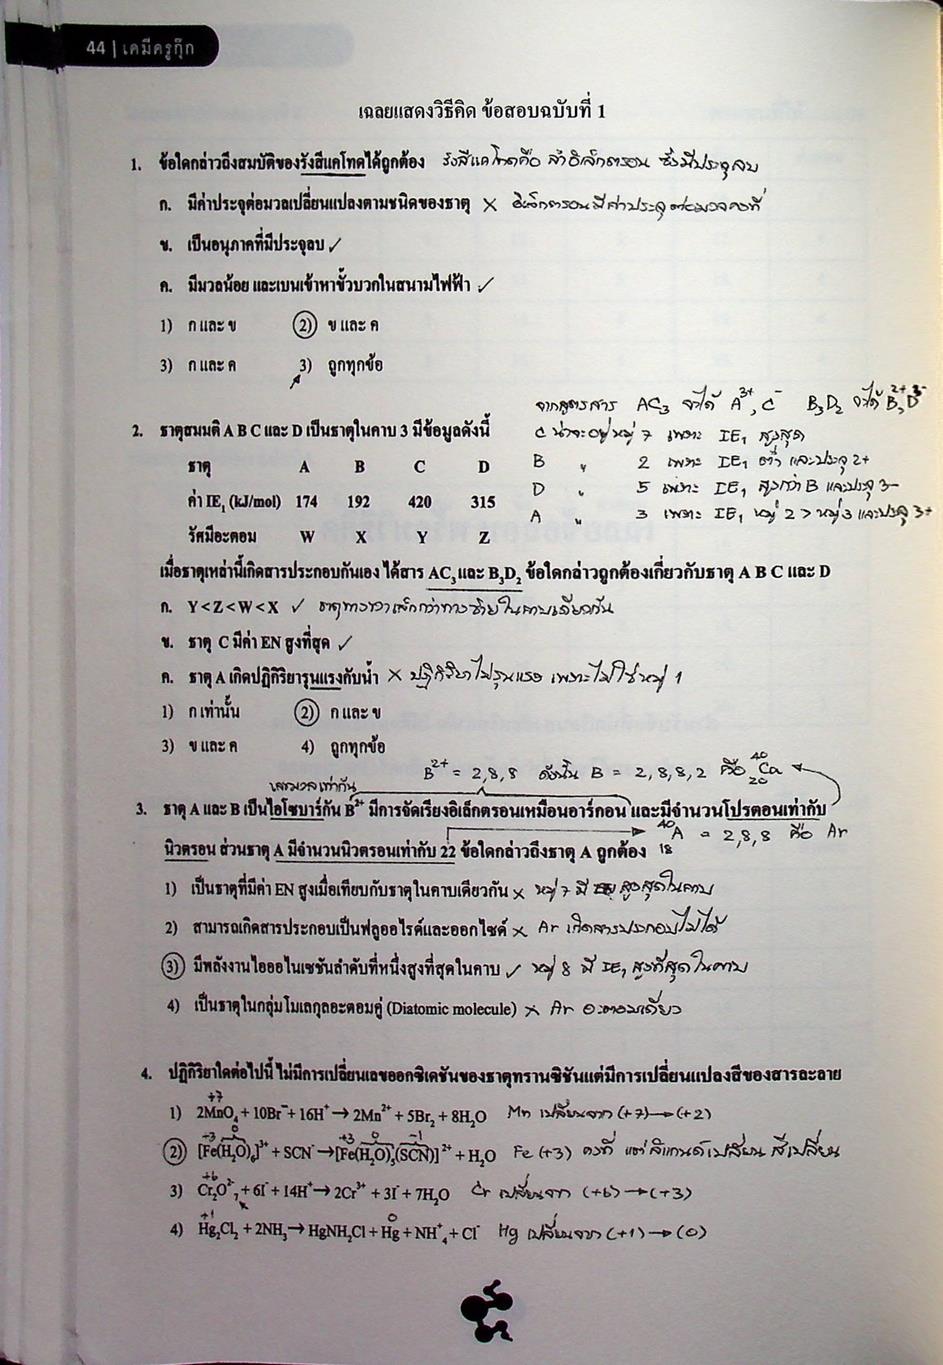 44 | เคมีครูกุ๊ก
เฉลยแสดงวิธีคิด ข้อสอบฉบับที่ 1
1. ข้อใดกล่าวถึงสมบัติของรังสีแคโทดได้ถูกต้อง รังสีแคโทดคือ ลำอิเล็กตรอน ซึ่งมีประจุลบ
ก. มีค่าประจุต่อมวลเปลี่ยนแปลงตามชนิดของธาตุ × อิเล็กตรอนมีค่าประจุต่อมวลคงที่
ข. เป็นอนุภาคที่มีประจุลบ ✓
ค. มีมวลน้อย และเบนเข้าหาขั้วบวกในสนามไฟฟ้า ✓
1) ก และ ข 2) ข และ ค
3) ก และ ค 3) ถูกทุกข้อ
จากสูตรสาร AC₃ จะได้ A³⁺, C⁻ B₃D₂ จะได้ B²⁺, D³⁻
2. ธาตุสมมติ A B C และ D เป็นธาตุในคาบ 3 มีข้อมูลดังนี้ C น่าจะอยู่หมู่ 7 เพราะ IE₁ สูงสุด
ธาตุ A B C D B " 2 เพราะ IE₁ ต่ำ และประจุ 2+
ค่า IE₁ (kJ/mol) 174 192 420 315 D " 5 เพราะ IE₁ สูงกว่า B และประจุ 3-
รัศมีอะตอม W X Y Z A " 3 เพราะ IE₁ หมู่ 2 > หมู่ 3 และประจุ 3+
เมื่อธาตุเหล่านี้เกิดสารประกอบกันเอง ได้สาร AC₃ และ B₃D₂ ข้อใดกล่าวถูกต้องเกี่ยวกับธาตุ A B C และ D
ก. Y < Z < W < X ✓ ธาตุทางขวาเล็กกว่าทางซ้ายในคาบเดียวกัน
ข. ธาตุ C มีค่า EN สูงที่สุด ✓
ค. ธาตุ A เกิดปฏิกิริยารุนแรงกับน้ำ × ปฏิกิริยาไม่รุนแรง เพราะไม่ใช่หมู่ 1
1) ก เท่านั้น 2) ก และ ข
3) ข และ ค 4) ถูกทุกข้อ
B²⁺ = 2,8,8 ดังนั้น B = 2,8,8,2 คือ ⁴⁰₂₀Ca
เลขมวลเท่ากัน
3. ธาตุ A และ B เป็นไอโซบาร์กัน B²⁺ มีการจัดเรียงอิเล็กตรอนเหมือนอาร์กอน และมีจำนวนโปรตอนเท่ากับ
⁴⁰₁₈A = 2,8,8 คือ Ar
นิวตรอน ส่วนธาตุ A มีจำนวนนิวตรอนเท่ากับ 22 ข้อใดกล่าวถึงธาตุ A ถูกต้อง
1) เป็นธาตุที่มีค่า EN สูงเมื่อเทียบกับธาตุในคาบเดียวกัน × หมู่ 7 มี EN สูงสุดในคาบ
2) สามารถเกิดสารประกอบเป็นฟลูออไรด์และออกไซด์ × Ar เกิดสารประกอบไม่ได้
3) มีพลังงานไอออไนเซชันลำดับที่หนึ่งสูงที่สุดในคาบ ✓ หมู่ 8 มี IE₁ สูงที่สุดในคาบ
4) เป็นธาตุในกลุ่มโมเลกุลอะตอมคู่ (Diatomic molecule) × Ar อะตอมเดี่ยว
4. ปฏิกิริยาใดต่อไปนี้ ไม่มีการเปลี่ยนเลขออกซิเดชันของธาตุทรานซิชันแต่มีการเปลี่ยนแปลงสีของสารละลาย
+7
1) 2MnO₄⁻ + 10Br⁻ + 16H⁺ → 2Mn²⁺ + 5Br₂ + 8H₂O Mn เปลี่ยนจาก (+7) → (+2)
+3 0 +3 0 -1
2) [Fe(H₂O)₆]³⁺ + SCN⁻ → [Fe(H₂O)₅(SCN)]²⁺ + H₂O Fe (+3) คงที่ แต่ลิแกนด์เปลี่ยน สีเปลี่ยน
+6
3) Cr₂O²⁻₇ + 6I⁻ + 14H⁺ → 2Cr³⁺ + 3I⁻ + 7H₂O Cr เปลี่ยนจาก (+6) → (+3)
+1 0
4) Hg₂Cl₂ + 2NH₃ → HgNH₂Cl + Hg + NH⁺₄ + Cl⁻ Hg เปลี่ยนจาก (+1) → (0)